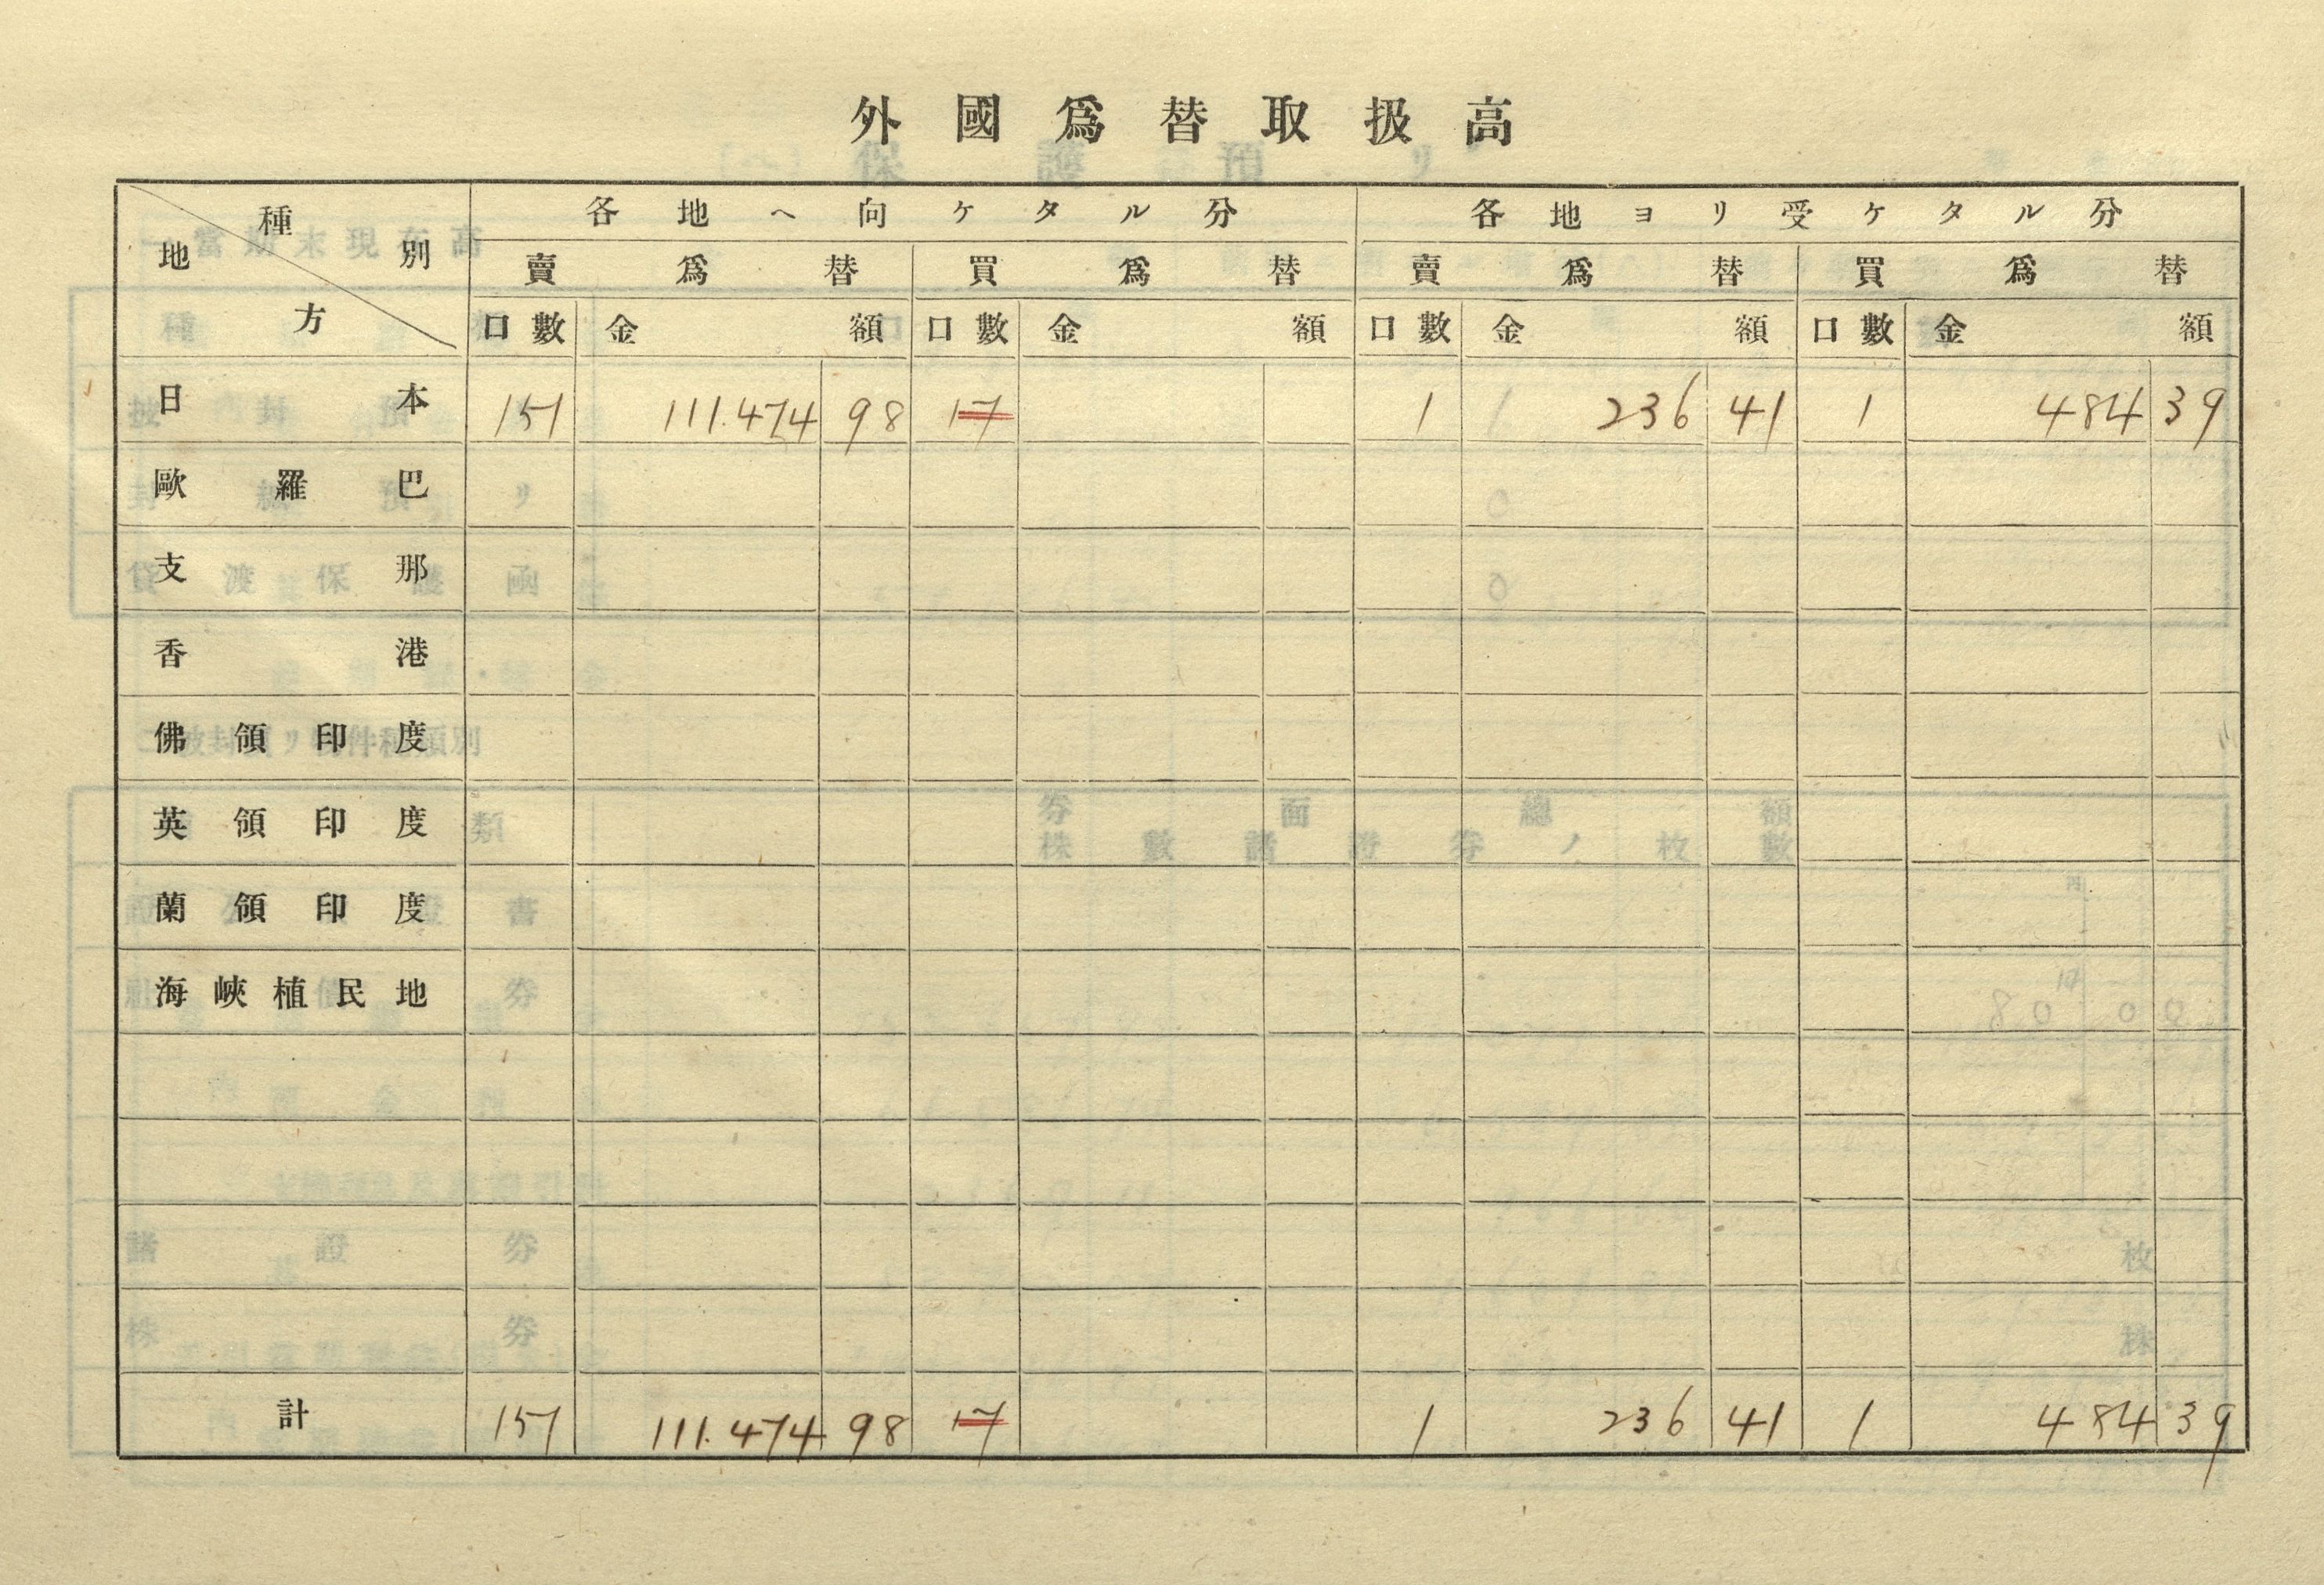 外國爲替取扱高
種別 地方 各地へ向ケタル分 各地ヨリ受ケタル分
賣爲替 買爲替 賣爲替 買爲替
口數 金額 口數 金額 口數 金額 口數 金額
日本 151 111.474 98 17 1 236 41 1 484 39
歐羅巴
支那
香港
佛領印度
英領印度
蘭領印度
海峽植民地
計 151 111.474 98 17 1 236 41 1 484 39